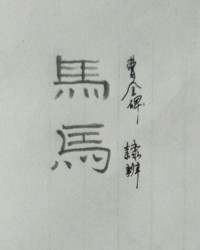 馬
馬
曹全碑
隸辨